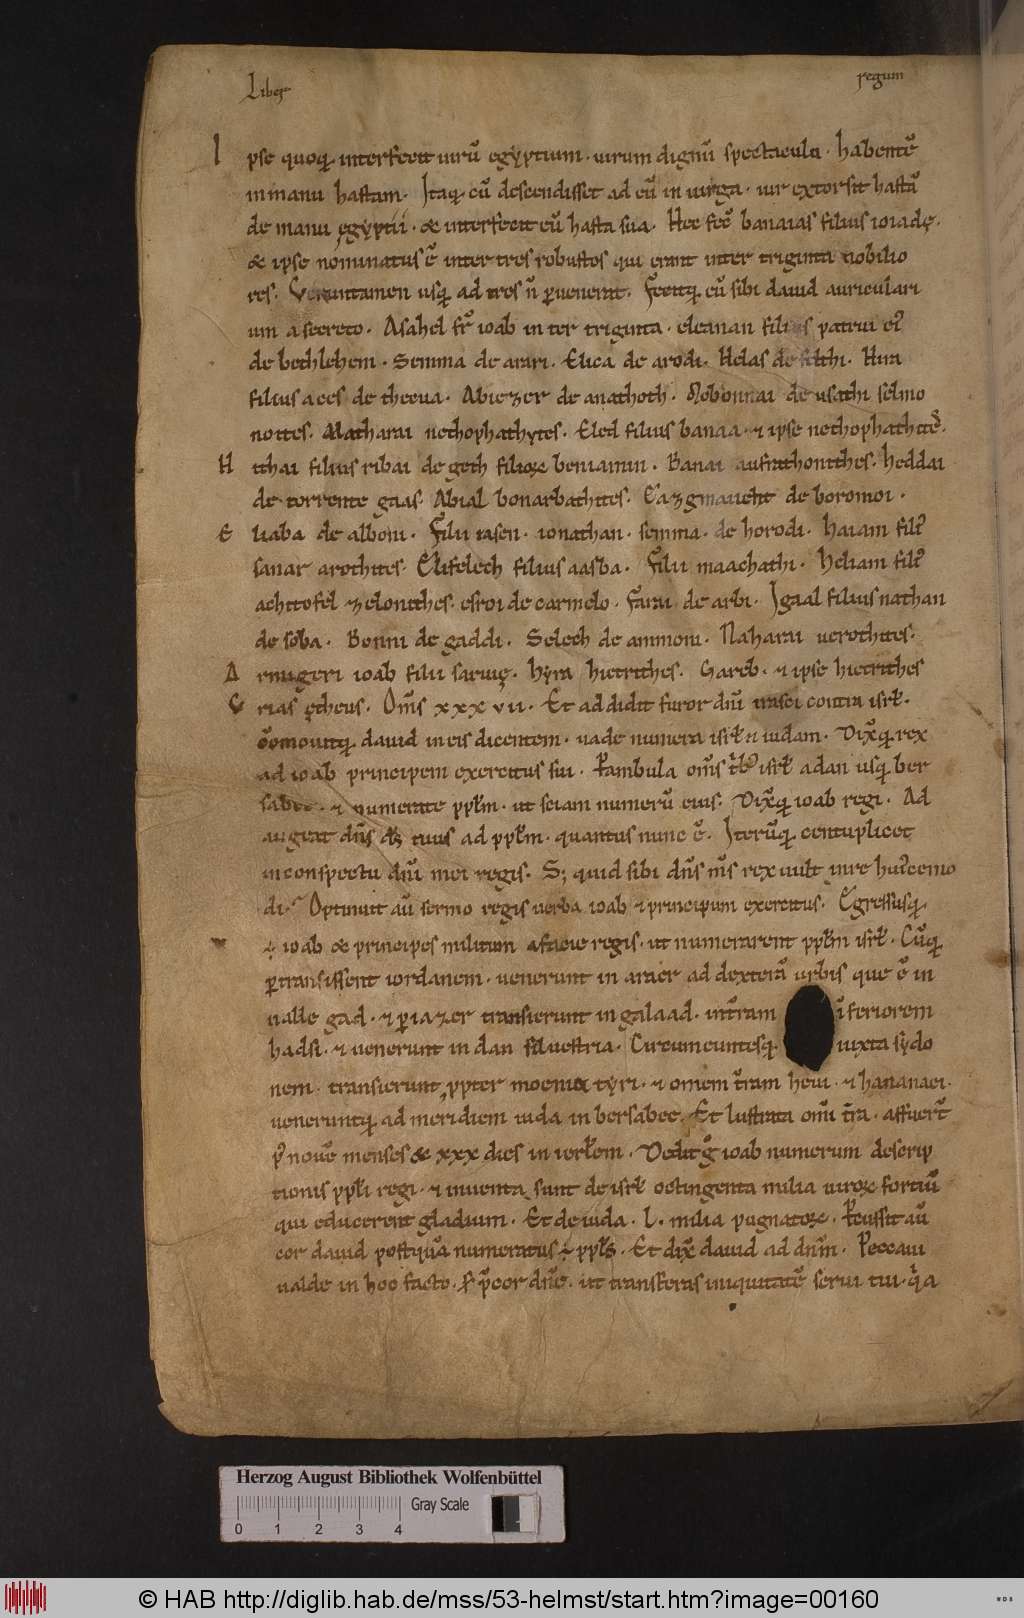 Liber regum
Ipse quoq; interfecit uirū egẏptium · uirum dignū spectaculo · habentē
in manu hastam · Itaq; cū descendisset ad eū in uirga · uir extorsit hastā
de manu ęgẏptii · & interfecit eū hasta sua · Hec fec̄ banaias filius ioiadę ·
& ipse nominatus ē inter tres robustos qui erant inter triginta nobilio
res · Veruntamen usq; ad tres n̄ ꝑuenerat · Fecitq; eū sibi dauid auriculari
um a secreto · Asahel fr̄ ioab inter triginta · eleanan filius patrui ei᾿
de bethlehem · Semma de arari · Elica de arodi · Helas de felthi · Hira
filius acces de thecua · Abiezer de anathoth · Mobonnai de usathi selmo
nottes · Matharai nethophathẏtes · Eled filius banaa · ⁊ ipse nethophathites ·
Hithai filius ribai de geth filioꝝ beniamin · Banai aufrathonithes · heddai
de torrente gaas · Abial bonarbathites · Eazgmaueht de boromoi ·
Eliaba de alboni · Filii iasen · ionathan · semma · de horodi · Haiam fili᾿
sarar arothites · Elifelech filius aasba · Filii maachathi · Heliam fili᾿
achitofel ⁊zelonithes · esroi de carmelo · Farai de arbi · Igaal filius nathan
de soba · Bonni de gaddi · Selech de ammoni · Naharai uerothites ·
Armigeri ioab filii saruię · Hẏra hietrithes · Gareb · ⁊ ipse hietrithes
Vrias ętheus · Om̄s xxxvii · Et addidit furor dn̄i irasci contra isrł ·
Cōmouitq; dauid in eis dicentem · uade numera isrł ⁊ iudam · Dix̄q; rex
ad ioab principem exercitus sui · Perambula om̄s trib᾿ isrł a dan usq; ber
sabee · ⁊ numerate ppłm · ut sciam numerū eius · Dix̄q; ioab regi · Ad
augeat dn̄s ds̄ tuus ad ppłm · quantus nunc ē · Iterūq; centuplicet
in conspectu dn̄i mei regis · S; quid sibi dn̄s m̄s rex uult in re hui᾿cemo
di · Optinuit aū sermo regis uerba ioab ⁊ principum exercitus · Egressusq;
÷ ioab & principes militum a facie regis · ut numerarent ppłm isrł · Cūq;
ꝑtransissent iordanem · uenerunt in aroer ad dexterā urbis que ē in
ualle gad · ⁊ ꝑ iazer transierunt in galaad · int̄ram īferiorem
hadsi · ⁊ uenerunt in dan siluestria · Circumeuntesq; iuxta sẏdo
nem · transierunt ꝓpter moenia tẏri · ⁊ omem t̄ram heui · ⁊ hananaei ·
ueneruntq; ad meridiem iuda in bersabee · Et lustrata omi t̄ra · affuer̄
p᾿ nouē menses & xxx dies in ierłem · Dedit ḡ ioab numerum descrip
tionis ppłi regi · ⁊ inuenta sunt de isrł octingenta milia uiroꝝ fortiū
qui educerent gladium · Et de iuda · L · milia pugnatoꝝ · Percussit aū
cor dauid postquā numeratus ÷ ppłs · Et dix̄ dauid ad dn̄m · Peccaui
ualde in hoc facto · S; p̄cor dn̄e · ut transferas iniquitatē serui tui · q̓a
Herzog August Bibliothek Wolfenbüttel
Gray Scale
0 1 2 3 4
© HAB http://diglib.hab.de/mss/53-helmst/start.htm?image=00160